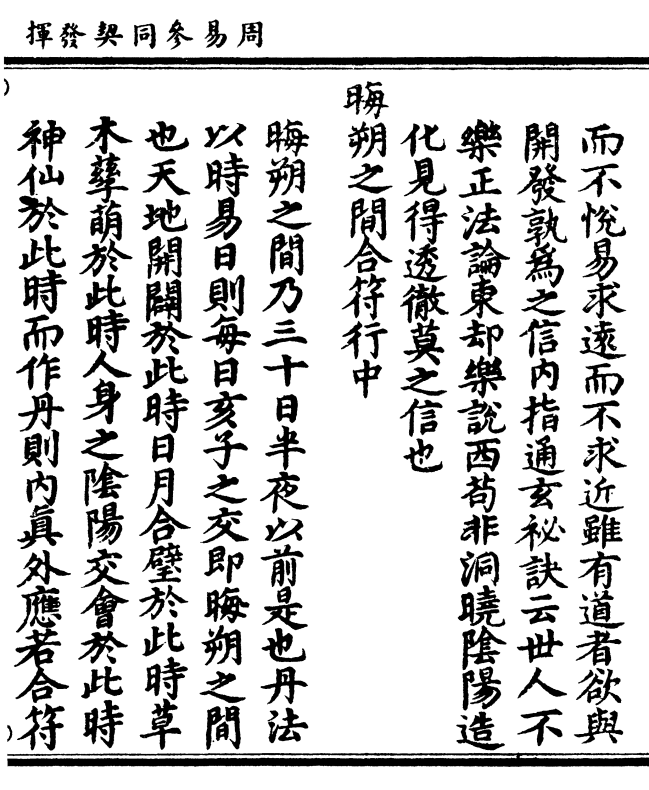 周易參同契發揮
而不悅易求遠而不求近雖有道者欲與
開發孰爲之信內指通玄祕訣云世人不
樂正法論東却樂說西苟非洞曉陰陽造
化見得透徹莫之信也
晦朔之間合符行中
晦朔之間乃三十日半夜以前是也丹法
以時易日則每日亥子之交即晦朔之間
也天地開闢於此時日月合璧於此時草
木孳萌於此時人身之陰陽交會於此時
神仙於此時而作丹則內眞外應若合符